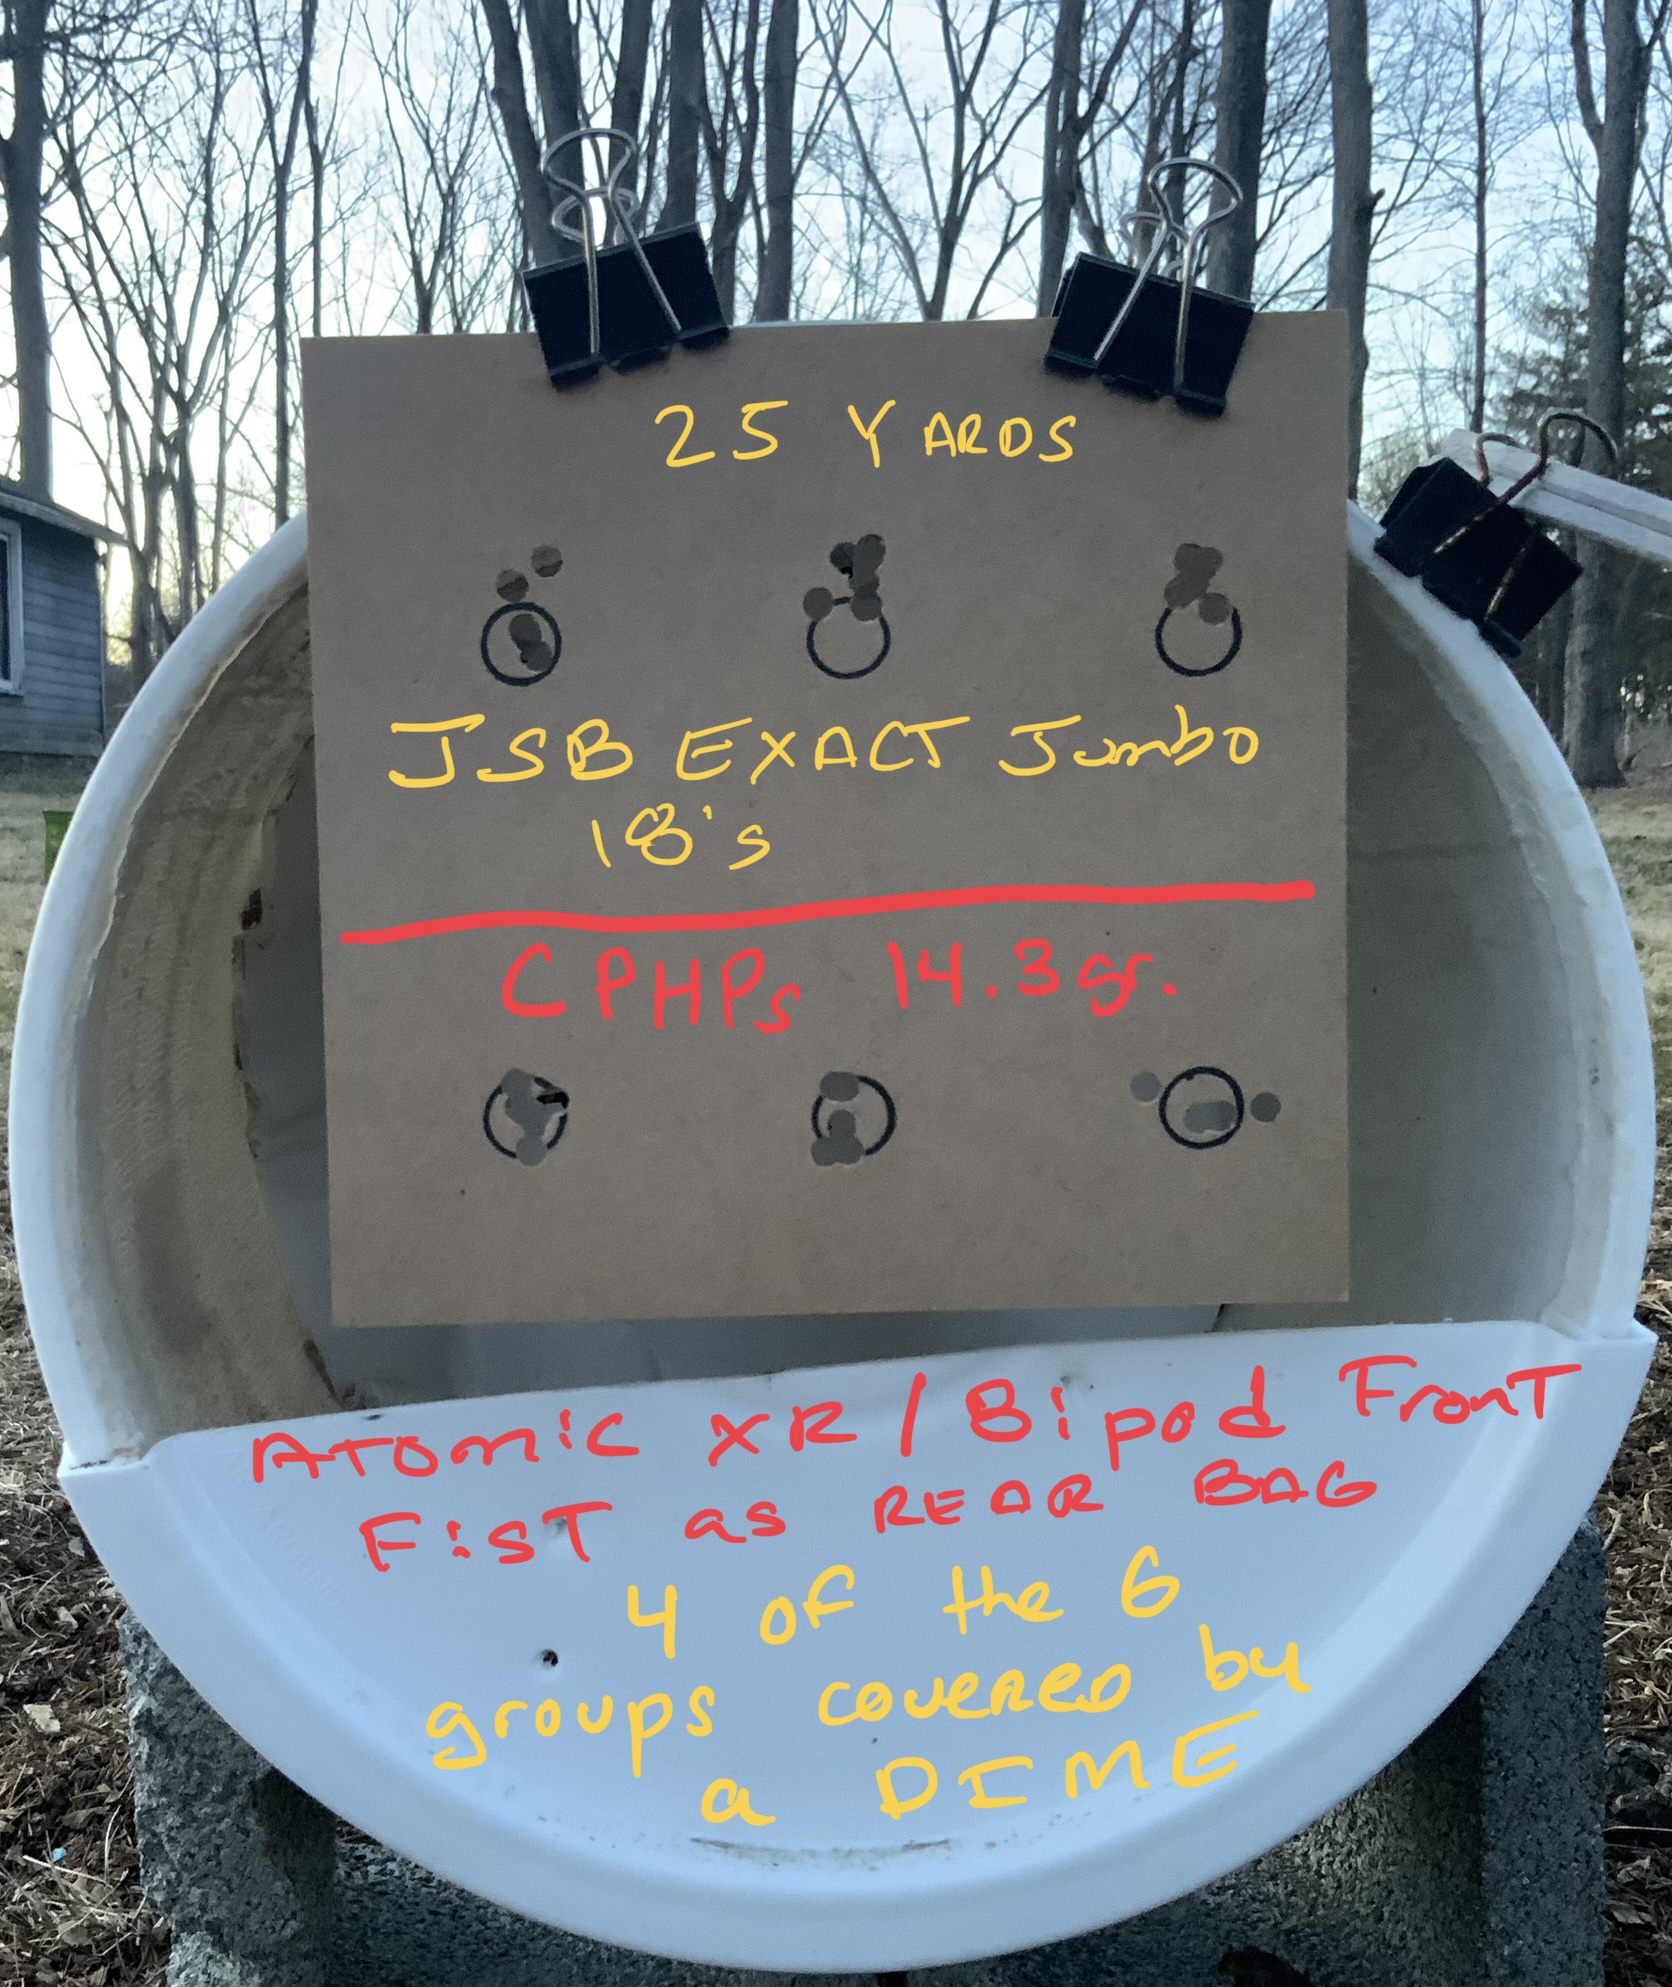 25 YARDS
JSB EXACT Jumbo
18's
CPHPs 14.3gr.
ATOMiC XR / Bipod FronT
FisT as REAR BAG
4 of the 6
groups covered by
a DIME